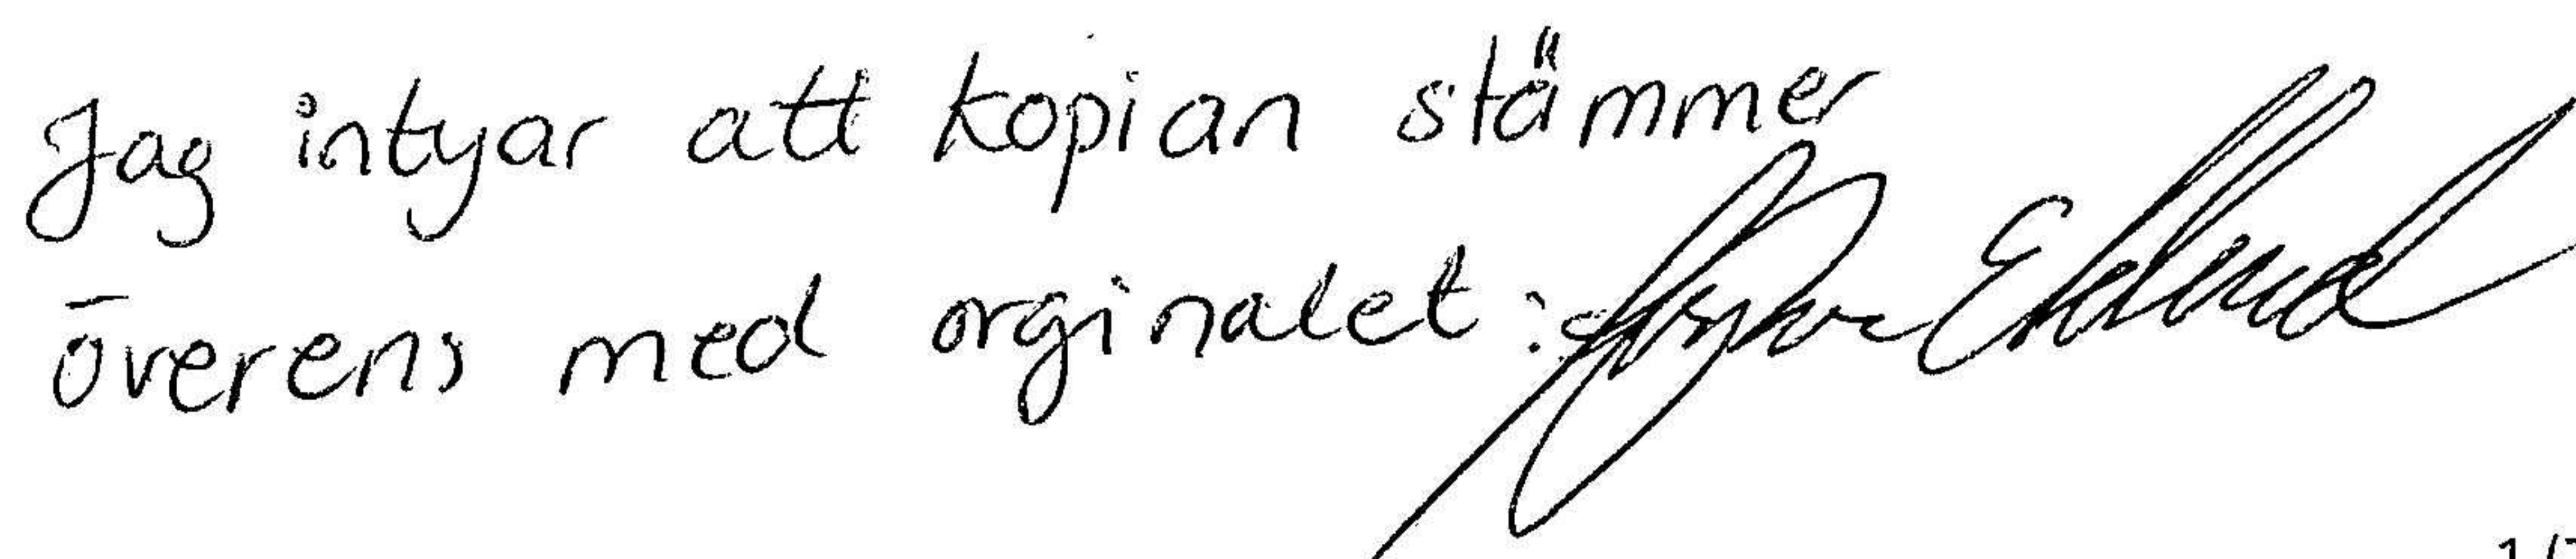 Jag intyar att kopian stämmer
överens med orginalet: